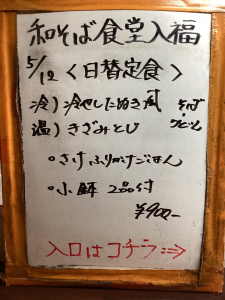 和そば食堂入福
5/12 <日替定食>
冷) 冷やしたぬき風 そば・うどん
温) きざみとじ
・さけふりかけごはん
・小鉢 2品付
¥900-
入口はコチラ⇒